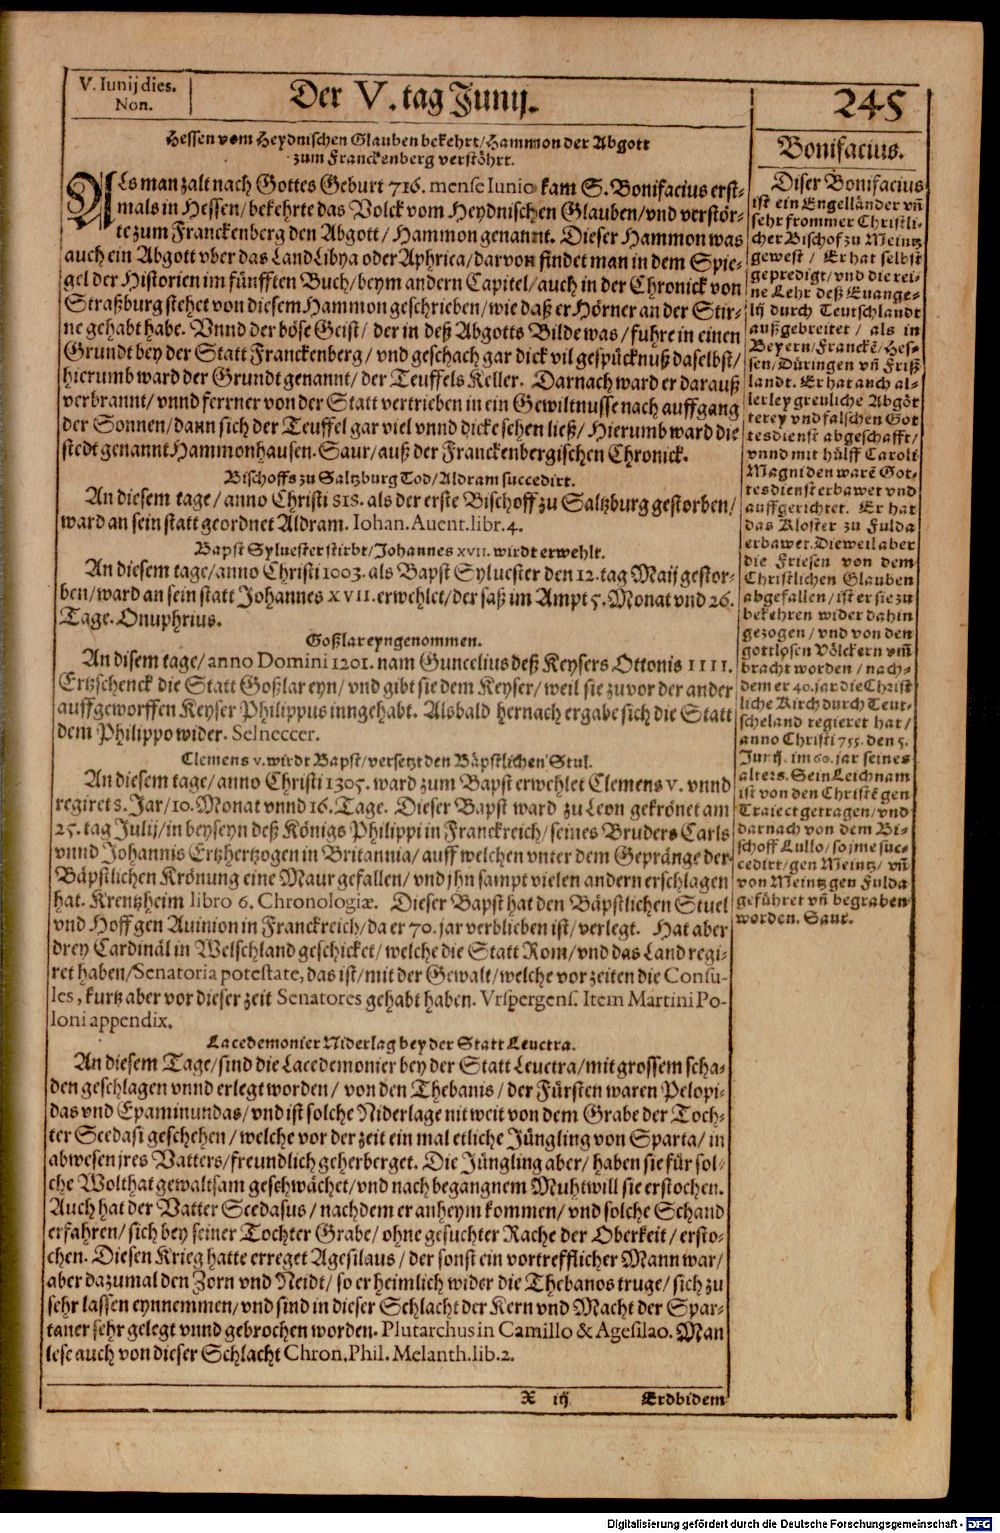 V. Iunij dies.
Non.
Der V. tag Junij.
245
Hessen vom Heydnischen Glauben bekehrt/Hammon der Abgott
zum Franckenberg verstöhrt.
ALs man zalt nach Gottes Geburt 716. mense Iunio kam S. Bonifacius erst-
mals in Hessen/bekehrte das Volck vom Heydnischen Glauben/vnd verstör-
te zum Franckenberg den Abgott/ Hammon genannt. Dieser Hammon was
auch ein Abgott vber das Land Libya oder Aphrica/darvon findet man in dem Spie-
gel der Historien im fünfften Buch/beym andern Capitel/auch in der Chronick von
Straßburg stehet von diesem Hammon geschrieben/wie daß er Hörner an der Stir-
ne gehabt habe. Vnnd der böse Geist/ der in deß Abgotts Bilde was/fuhre in einen
Grundt bey der Statt Franckenberg/ vnd geschach gar dick vil gespücknuß daselbst/
hierumb ward der Grundt genannt/ der Teuffels Keller. Darnach ward er darauß
verbrannt/ vnnd ferrner von der Statt vertrieben in ein Gewiltnusse nach auffgang
der Sonnen/dann sich der Teuffel gar viel vnnd dicke sehen ließ/ Hierumb ward die
stedt genannt Hammonhausen. Saur/auß der Franckenbergischen Chronick.
Bischoffs zu Saltzburg Tod/Aldram succedirt.
An diesem tage/ anno Christi 818. als der erste Bischoff zu Saltzburg gestorben/
ward an sein statt geordnet Aldram. Iohan. Auent. libr. 4.
Bapst Syluester stirbt/Johannes xvii. wirdt erwehlt.
An diesem tage/anno Christi 1003. als Bapst Syluester den 12. tag Maij gestor-
ben/ward an sein statt Johannes XVII. erwehlet/der saß im Ampt 5. Monat vnd 26.
Tage. Onuphrius.
Goßlar eyngenommen.
An disem tage/anno Domini 1201. nam Guncelius deß Keysers Ottonis IIII.
Ertzschenck die Statt Goßlar eyn/ vnd gibt sie dem Keyser/ weil sie zuvor der ander
auffgeworffen Keyser Philippus inngehabt. Alsbald hernach ergabe sich die Statt
dem Philippo wider. Selneccer.
Clemens v. wirdt Bapst/versetzt den Bäpstlichen Stul.
An diesem tage/anno Christi 1305. ward zum Bapst erwehlet Clemens V. vnnd
regiret 8. Jar/10. Monat vnnd 16. Tage. Dieser Bapst ward zu Leon gekrönet am
25. tag Julij/in beyseyn deß Königs Philippi in Franckreich/seines Bruders Carls
vnnd Johannis Ertzhertzogen in Britannia/auff welchen vnter dem Gepränge der
Bäpstlichen Krönung eine Maur gefallen/ vnd jhn sampt vielen andern erschlagen
hat. Krentzheim libro 6. Chronologiæ. Dieser Bapst hat den Bäpstlichen Stuel
vnd Hoff gen Auinion in Franckreich/da er 70. jar verblieben ist/verlegt. Hat aber
drey Cardinäl in Welschland geschicket/welche die Statt Rom/vnd das Land regi-
ret haben/Senatoria potestate, das ist/mit der Gewalt/welche vor zeiten die Consu-
les, kurtz aber vor dieser zeit Senatores gehabt haben. Vrspergens. Item Martini Po-
loni appendix.
Lacedemonier Niderlag bey der Statt Leuctra.
An diesem Tage/sind die Lacedemonier bey der Statt Leuctra/mit grossem scha-
den geschlagen vnnd erlegt worden/ von den Thebanis/ der Fürsten waren Pelopi-
das vnd Epaminundas/vnd ist solche Niderlage nit weit von dem Grabe der Toch-
ter Scedasi geschehen/welche vor der zeit ein mal etliche Jüngling von Sparta/ in
abwesen jres Vatters/freundlich geherberget. Die Jüngling aber/ haben sie für sol-
che Wolthat gewaltsam geschwächet/vnd nach begangnem Muhtwill sie erstochen.
Auch hat der Vatter Scedasus/nachdem er anheym kommen/ vnd solche Schand
erfahren/sich bey seiner Tochter Grabe/ohne gesuchter Rache der Oberkeit/ ersto-
chen. Diesen Krieg hatte erreget Agesilaus/der sonst ein vortrefflicher Mann war/
aber dazumal den Zorn vnd Neidt/ so er heimlich wider die Thebanos truge/sich zu
sehr lassen eynnemmen/vnd sind in dieser Schlacht der Kern vnd Macht der Spar-
taner sehr gelegt vnnd gebrochen worden. Plutarchus in Camillo & Agesilao. Man
lese auch von dieser Schlacht Chron. Phil. Melanth. lib. 2.
Bonifacius.
Diser Bonifacius
ist ein Engelländer vñ
sehr frommer Christli-
cher Bischof zu Meintz
gewest/ Er hat selbst
gepredigt/vnd die rei-
ne Lehr deß Euange-
lij durch Teutschlandt
außgebreitet/ als in
Beyern/Franckē/Hes-
sen/Düringen vñ Frieß
landt. Er hat auch al-
lerley greuliche Abgöt
terey vnd falschen Got
tesdienst abgeschafft/
vnnd mit hülff Caroli
Magni den warē Got-
tesdienst erbawet vnd
auffgerichtet. Er hat
das Kloster zu Fulda
erbawet. Dieweil aber
die Friesen von dem
Christlichen Glauben
abgefallen/ist er sie zu
bekehren wider dahin
gezogen/ vnd von den
gottlosen Völckern vm̄
bracht worden/ nach-
dem er 40. jar die Christ
liche Kirch durch Teut-
scheland regieret hat/
anno Christi 755. den 5.
Junij. im 60. jar seines
alters. Sein Leichnam
ist von den Christē gen
Traiect getragen/vnd
darnach von dem Bi-
schoff Lullo/so jme suc-
cedirt/gen Meintz/ vñ
von Meintz gen Fulda
geführet vñ begraben
worden. Saur.
X iij
Erdbidem
Digitalisierung gefördert durch die Deutsche Forschungsgemeinschaft - DFG